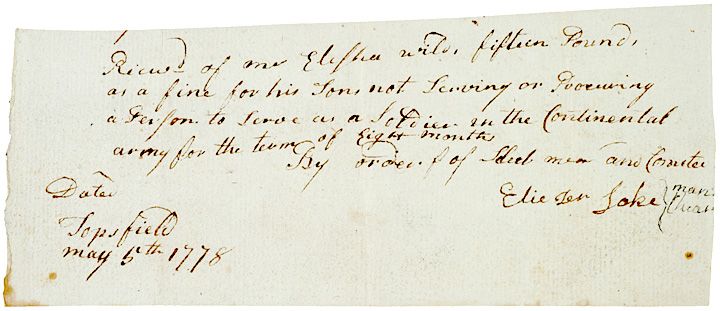 Riceud of mr Elisha wild, fifteen Pound,
as a fine for his Sons not Serving or Procuring
a Person to Serve as a Soldier in the Continental
army for the term of Eight months
By order of Select men and Comitee
Eliezer Lake
Dated
Topsfield
may 5th 1778